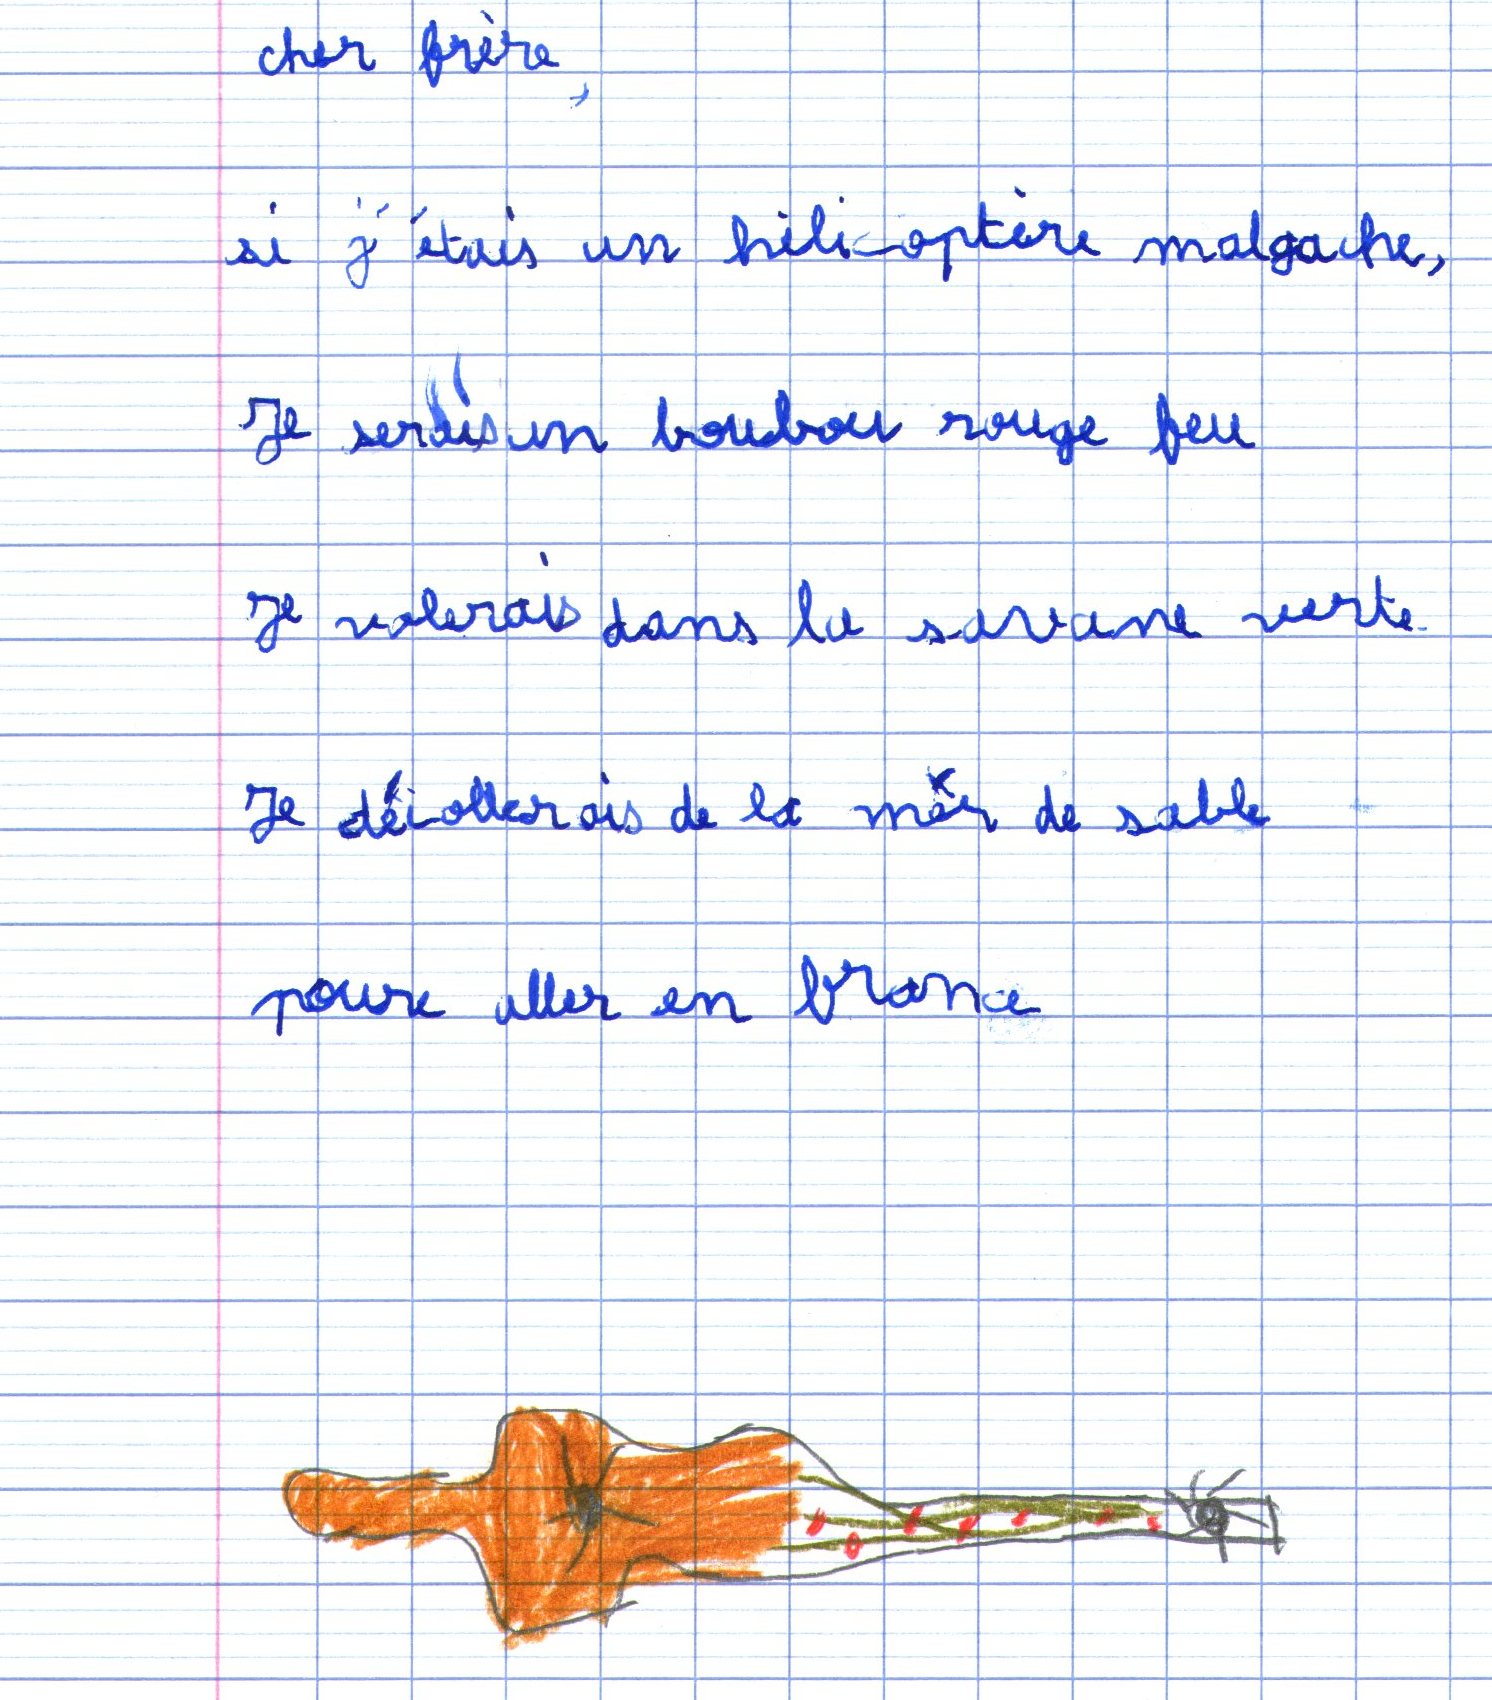 cher frère,
si j'étais un hélicoptère malgache,
Je serais un boubou rouge feu
Je volerais dans la savane verte.
Je décollerais de la mer de sable
poure aller en france